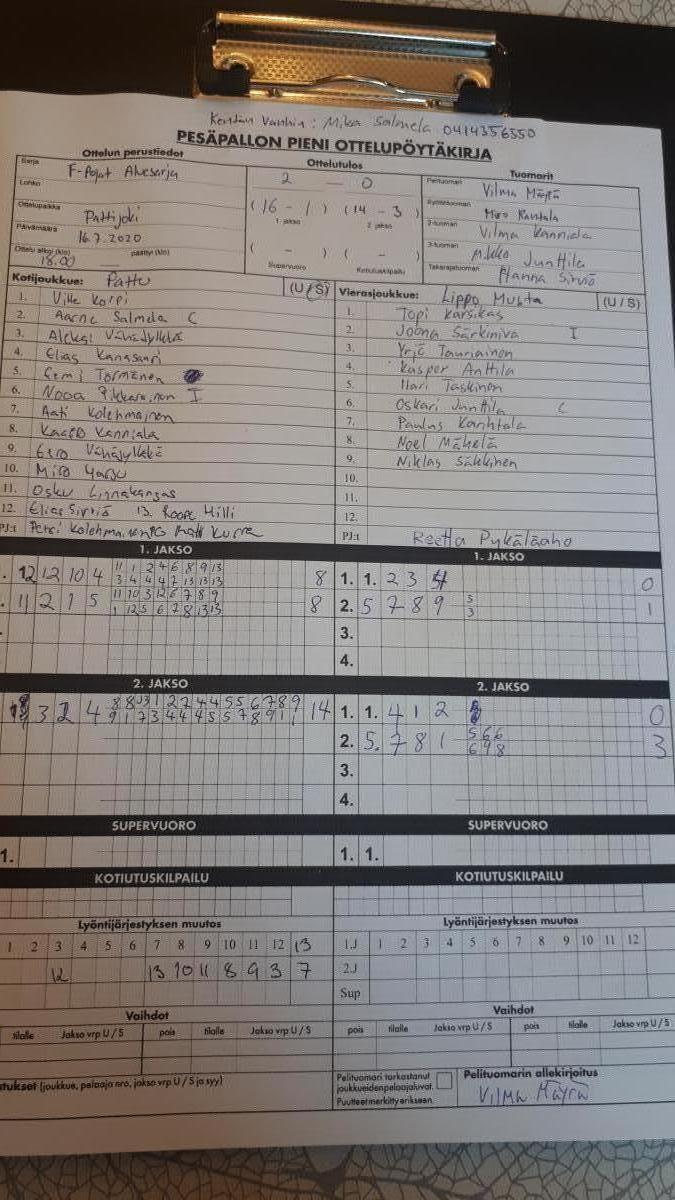 Kentän Vanhin: Mika Salmela 0414356350
PESÄPALLON PIENI OTTELUPÖYTÄKIRJA
Ottelun perustiedot
Sarja F-Pojat Aluesarja
Lohko
Ottelupaikka Pattijoki
Päivämäärä 16.7.2020
Ottelu alkoi (klo) 18.00 päättyi (klo)
Ottelutulos
2 - 0
(16 - 1) (14 - 3)
1. jakso 2. jakso
( - ) ( - )
Supervuoro Kotiutuskilpailu
Tuomarit
Pelituomari Vilma Mäyrä
Syöttötuomari Miro Rautala
2-tuomari Vilma Kanniala
3-tuomari Mikko Junttila
Takarajatuomari Hanna Sirviö
Kotijoukkue: Pattu (U/S)
1. Ville Karpi
2. Aarne Salmela C
3. Aleksi Vähäjylkkä
4. Elias Kanasaari
5. Eemi Törmänen
6. Nooa Pikkarainen I
7. Aati Kolehmainen
8. Kaapo Kanniala
9. Eero Vähäjylkkä
10. Miro
11. Osku Linnakangas
12. Elias Sirviö 13. Roope Hilli
PJ:t Petri Kolehmainen Matti Kurra
Vierasjoukkue: Lippo Musta (U/S)
1. Topi Karsikas
2. Joona Särkiniva I
3. Yrjö Tauriainen
4. Kasper Anttila
5. Ilari Taskinen
6. Oskari Junttila C
7. Paulus Karhtala
8. Noel Mähelä
9. Niklas Säkkinen
10.
11.
12.
PJ:t Reetta Pykäläaho
1. JAKSO
12 12 10 4 11 1 2 4 6 8 9 13 8
3 4 4 4 7 13 13 13
11 2 1 5 11 10 3 12 6 7 8 9 8
1 12 5 6 7 8 13 13
1. JAKSO
1. 1. 2 3 4 0
2. 5 7 8 9 5 1
3
3.
4.
2. JAKSO
3 2 4 14
2. JAKSO
1. 1. 4 1 2 0
2. 5. 7 8 1 5 6 6 3
6 9 8
3.
4.
SUPERVUORO
1.
SUPERVUORO
1. 1.
KOTIUTUSKILPAILU
KOTIUTUSKILPAILU
Lyöntijärjestyksen muutos
1 2 3 4 5 6 7 8 9 10 11 12 13
12 13 10 11 8 9 3 7
Lyöntijärjestyksen muutos
1.J 1 2 3 4 5 6 7 8 9 10 11 12
2.J
Sup
Vaihdot
tilalle Jakso vrp U / S pois tilalle Jakso vrp U / S
Vaihdot
pois tilalle Jakso vrp U / S pois tilalle Jakso vrp U / S
(joukkue, pelaaja nro, jakso vrp U / S ja syy)
Pelituomari tarkastanut
joukkueiden pelaajaluvat.
Puutteet merkitty erikseen.
Pelituomarin allekirjoitus
Vilma Mäyrä